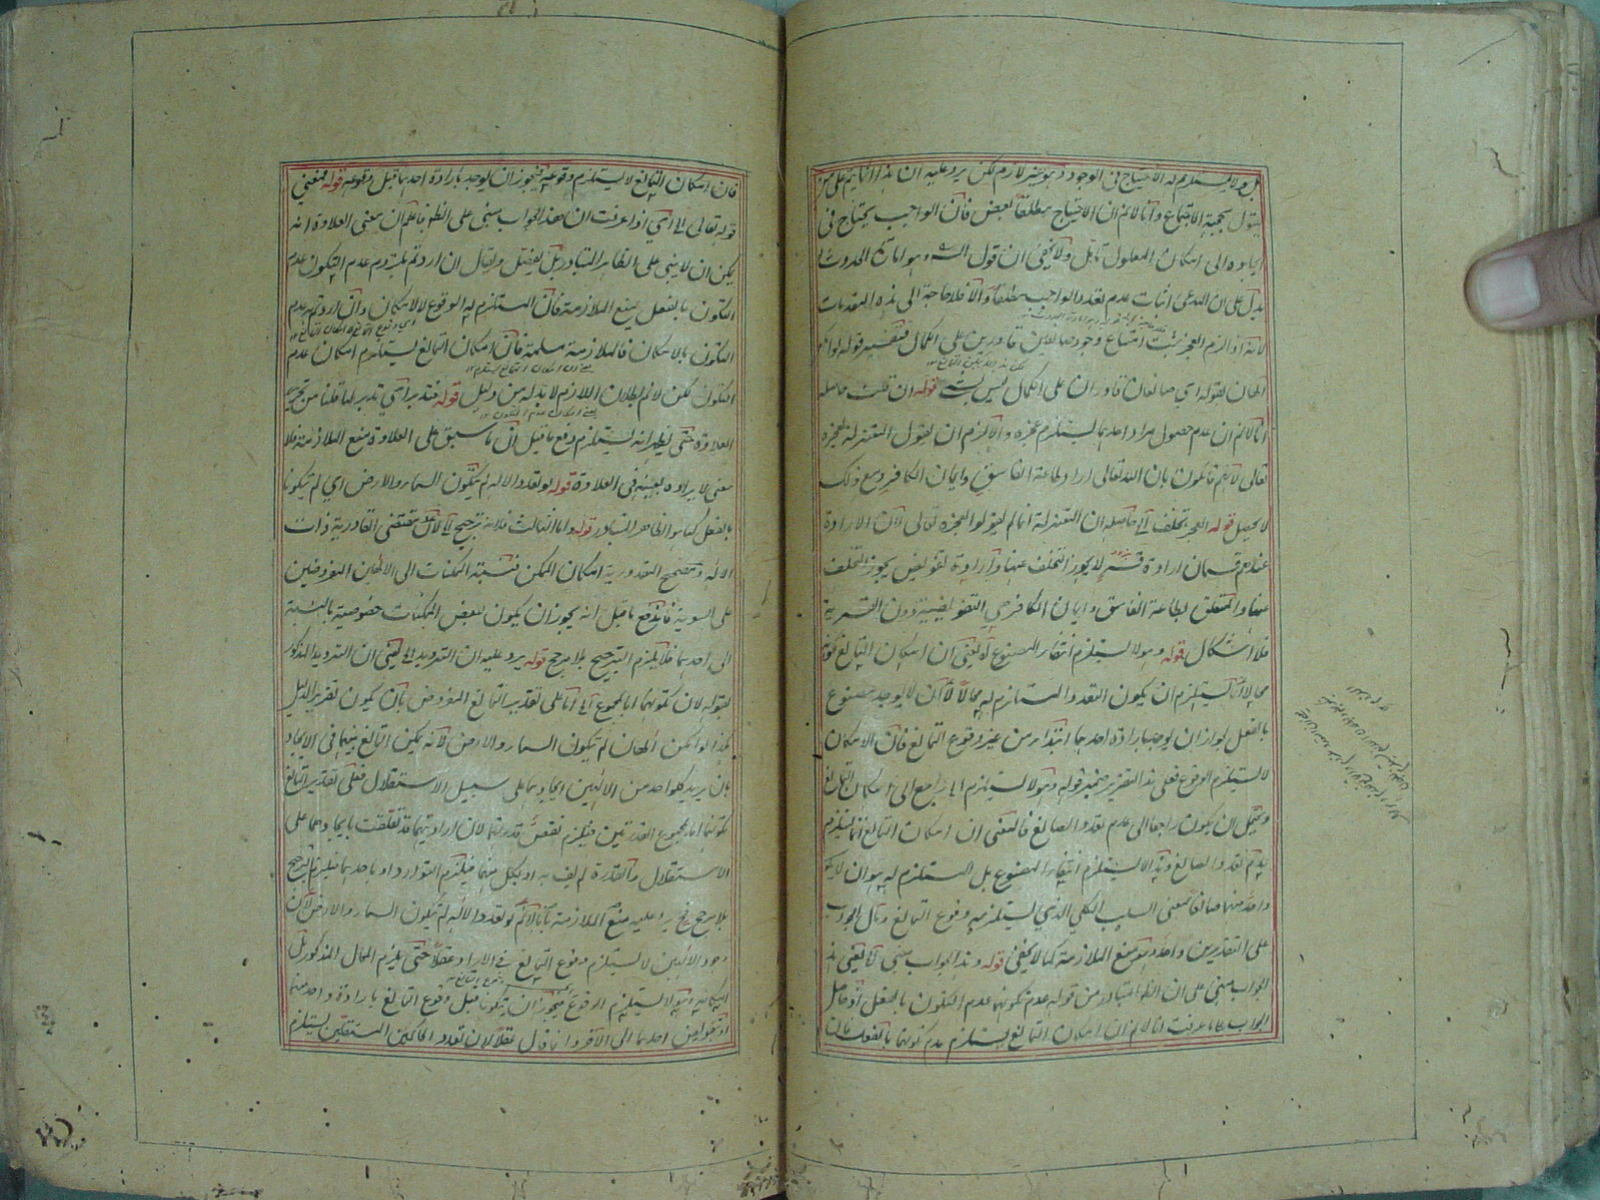 بل ولا يستلزم له الاحتياج فى الوجود وهو غير لازم لكن يرد عليه ان هذا انما يتم على من
يقول بحجية الاجماع وانا لا نم ان الاحتياج مطلقا نقص فان الواجب يحتاج فى
ايجاده الى امكان المعلول تأمل ولا يخفى ان قول الش وهو امارة الحدوث
يدل على ان المدعى اثبات عدم تعدد الواجب مطلقا والا فلا حاجة الى هذه المقدمات
لانه اذا لزم العجز ثبت امتناع وجود صانعين قادرين على الكمال فتفسير قوله لو امكن
الهان بقوله اي صانعان قادران على الكمال ليس بشئ قوله ان قلت حاصله
انا لا نم ان عدم حصول مراد احدهما يستلزم عجزه والا لزم ان يقول المعتزلة بعجزه
تعالى لانهم قائلون بان الله تعالى اراد طاعة الفاسق وايمان الكافر ومع ذلك
لا يحصل قوله العجز تخلف الخ حاصله ان المعتزلة انما لم يقولوا بعجزه تعالى لان الارادة
عندهم قسمان ارادة قسر لا يجوز التخلف عنها وارادة تفويض يجوز التخلف
عنها والمتعلق بطاعة الفاسق وايمان الكافر هي التفويضية دون القسرية
فلا اشكال قوله وهو لا يستلزم انتفاء المصنوع اه يعنى ان امكان التمانع لكونه
محالا انما يستلزم ان يكون التعدد المستلزم له محالا لا ان لا يوجد مصنوع
بالفعل لجواز ان يوجد بارادة احدهما ابتداء من غير وقوع التمانع فان الامكان
لا يستلزم الوقوع فعلى هذا التقرير ضمير قوله وهو لا يستلزم الخ راجع الى امكان التمانع
ويحتمل ان يكون راجعا الى عدم تعدد الصانع فالمعنى ان امكان التمانع انما يستلزم
عدم تعدد الصانع وهذا لا يستلزم انتفاء المصنوع بل المستلزم له هو ان لا يكون
واحد منهما صانعا بمعنى السلب الكلى الذي يستلزمه وقوع التمانع ومآل الجواب
على التقديرين واحد وهو منع الملازمة كما لا يخفى قوله وهذا الجواب مبنى الخ يعنى هذا
الجواب مبنى على ان الظ المتبادر من قوله عدم تكونهما عدم التكون بالفعل اذ حاصل
الجواب على ما عرفت انا لا نم ان امكان التمانع يستلزم عدم تكونهما بالفعل
فان امكان التمانع لا يستلزم وقوعه فيجوز ان يوجد بارادة احدهما قبل وقوعه قوله فمعنى
قوله تعالى الخ اي اذا عرفت ان هذا الجواب مبنى على الظ فاعلم ان معنى العلاوة انه
يمكن ان لا يبنى على الظاهر المتبادر بل يفصل ويقال ان اردتم بلزوم عدم التكون عدم
التكون بالفعل يمنع الملازمة فان المستلزم له الوقوع لا الامكان وان اردتم عدم
التكون بالامكان فالملازمة مسلمة فان امكان التمانع يستلزم امكان عدم
التكون لكن لا نم بطلان اللازم لا بد له من دليل قوله فتدبر اي تدبر لما قلنا من تحرير
العلاوة حتى يظهر انه يستلزم دفع ما قيل ان ما سبق على العلاوة منع الملازمة فلا
معنى لايراده بعينه فى العلاوة قوله لو تعدد الاله لم يتكون السماء والارض اي لم يتكونا
بالفعل كما هو الظاهر المتبادر قوله واما الثالث فلانه ترجيح الخ لان مقتضى القادرية ذات
الاله ومصحح المقدورية امكان الممكن فنسبة الممكنات الى الالهين المفروضين
على السوية فاندفع ما قيل انه يجوز ان يكون لبعض الممكنات خصوصية بالنسبة
الى احدهما فلا يلزم الترجيح بلا مرجح قوله يرد عليه ان الترديد الخ يعنى ان الترديد المذكور
بقوله لان تكونهما اما بمجموع الخ اما على تقدير التمانع المفروض بان يكون تقرير الدليل
هكذا لو امكن الهان لم يتكون السماء والارض لانه يمكن التمانع بينهما فى الايجاد
بان يريد كلا واحد من الالهين ايجادهما على سبيل الاستقلال فعلى تقدير التمانع
تكونهما اما بمجموع القدرتين فيلزم نقص قدرتهما لان ارادتهما قد تعلقت بايجادهما على
الاستقلال والقدرة لم يف به او بكل منهما فيلزم التوارد او باحدهما فيلزم الترجيح
بلا مرجح فح يرد عليه منع الملازمة بانا لا نم لو تعدد الاله لم يتكون السماء والارض لان
وجود الالهين لا يستلزم وقوع التمانع فى الارادة عقلا حتى يلزم المحال المذكور بل
امكانه وهو لا يستلزم الوقوع فيجوز ان يتكونا قبل وقوع التمانع بارادة واحد منهما
او بتفويض احدهما الى الآخر وانما قال عقلا لان تعدد الحاكمين المستقلين يستلزم